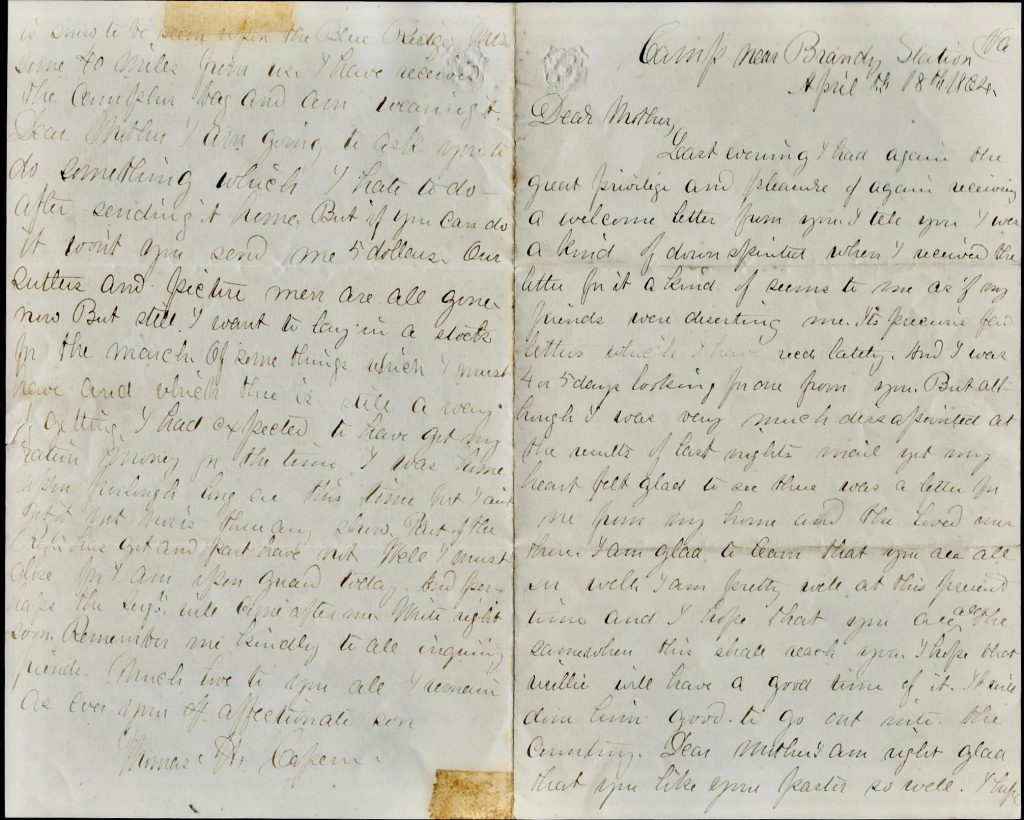 Camp near Brandy Station Va
April th 18th 1864.
Dear Mother,
Last evening I had again the
great privilege and pleasure of again receiving
a welcome letter from you. I tell you I was
a kind of down spirited when I received the
letter for it a kind of seems to me as if my
friends were deserting me. Its precious few
letters which I have recd lately. And I was
4 or 5 days looking for one from you. But alt-
hough I was very much dissappointed at
the results of last nights mail yet my
heart felt glad to see there was a letter for
me from my home and the loved ones
there. I am glad to learn that you are all
so well. I am pretty well at this present
time and I hope that you are all the
same when this shall reach you. I hope that
Willie will have a good time of it. It will
him good to go out the
Country. Dear Mother I am right glad
that you like your Pastor so well. I hope
is snow to be seen upon the Blue Ridge
some 40 miles from us. I have received
the camphor bag and am wearing it.
Dear Mother I am going to ask you to
do something which I hate to do
after sending it home. But if you can do
it wont you send me 5 dollars. Our
Sutlers and picture men are all gone
now But still I want to lay in a stock
for the march of some things which I must
have and which there is still a way
of getting. I had expected to have got my
ration money for the time I was home
upon furlough long ere this time but I aint
got it yet any show. Part of the
Regt have got and part have not. Well I must
close for I am upon guard today. And per-
haps the will come after me. Write right
soon. Remember me kindly to all inquiring
friends. Much love to you all I remain
As ever your aff affectionate son
Thomas H. Capern.